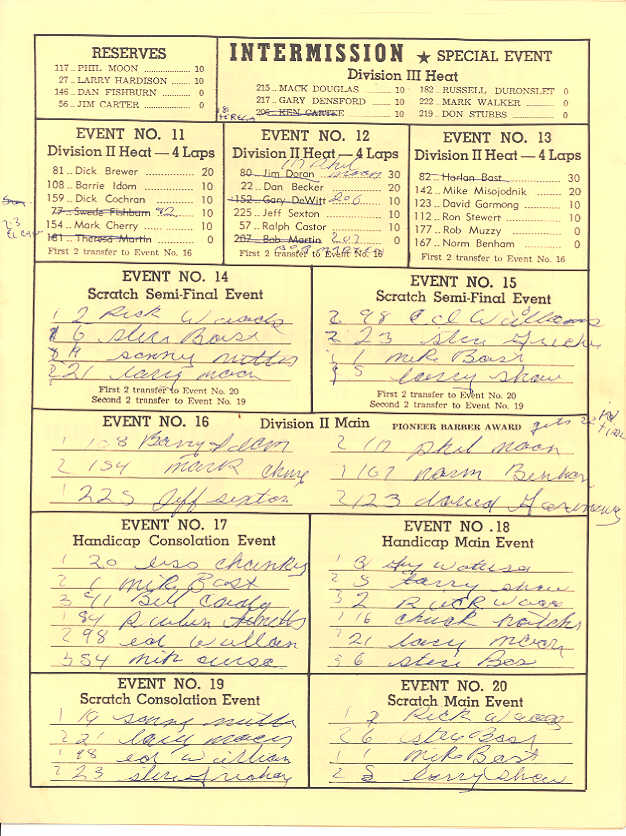 RESERVES
117 .. PHIL MOON .............. 10
27 .. LARRY HARDISON ... 10
146 .. DAN FISHBURN ........ 0
56 .. JIM CARTER .............. 0
INTERMISSION ★ SPECIAL EVENT
Division III Heat
215 .. MACK DOUGLAS ........ 10
217 .. GARY DENSFORD ...... 10
206 .. KEN CARTKE .............. 10
182 .. RUSSELL DURONSLET 0
222 .. MARK WALKER ........ 0
219 .. DON STUBBS .............. 0
EVENT NO. 11
Division II Heat — 4 Laps
81 .. Dick Brewer .............. 20
108 .. Barrie Idom .............. 10
159 .. Dick Cochran ............ 10
77 .. Swede Fishburn 92 10
154 .. Mark Cherry .............. 10
181 .. Theresa Martin .......... 0
First 2 transfer to Event No. 16
EVENT NO. 12
Division II Heat — 4 Laps
117 Phil moon
80 .. Jim Doran 30
22 .. Dan Becker .............. 20
152 .. Gary DeWitt 206 10
225 .. Jeff Sexton .............. 10
57 .. Ralph Castor ............ 0
207 .. Bob Martin 207 0
First 2 transfer to Event No. 16
EVENT NO. 13
Division II Heat — 4 Laps
82 .. Harlan Bast .............. 30
142 .. Mike Misojodnik ...... 20
123 .. David Garmong ........ 10
112 .. Ron Stewert .............. 10
177 .. Rob Muzzy .............. 0
167 .. Norm Benham .......... 0
First 2 transfer to Event No. 16
EVENT NO. 14
Scratch Semi-Final Event
1 2 Rick Woods
6 steve Bast
sonny nutter
2 21 larry moon
First 2 transfer to Event No. 20
Second 2 transfer to Event No. 19
EVENT NO. 15
Scratch Semi-Final Event
2 98 Ed Williams
2 23 steve
1 mike Bast
5 larry shaw
First 2 transfer to Event No. 20
Second 2 transfer to Event No. 19
EVENT NO. 16 Division II Main PIONEER BARBER AWARD
1 108 Barry Idom
2 154 mark
1 225 Jeff sexton
2 117 phil moon
1 167 norm Benham
2 123 david
EVENT NO. 17
Handicap Consolation Event
1 20
2 1 mike Bast
3 41 Bill
1 84
2 98 ed
3 54 mik
EVENT NO .18
Handicap Main Event
1
2 5 larry shaw
3 2 Rick Woods
1 16 chuck
2 21 larry moon
3 6 steve Bas
EVENT NO. 19
Scratch Consolation Event
1 19 sonny nutter
2 21 larry moon
1 98 ed william
2 23 steve
EVENT NO. 20
Scratch Main Event
1 2 Rick Woods
2 6 steve Bast
1 1 Mike Bast
2 5 larry shaw